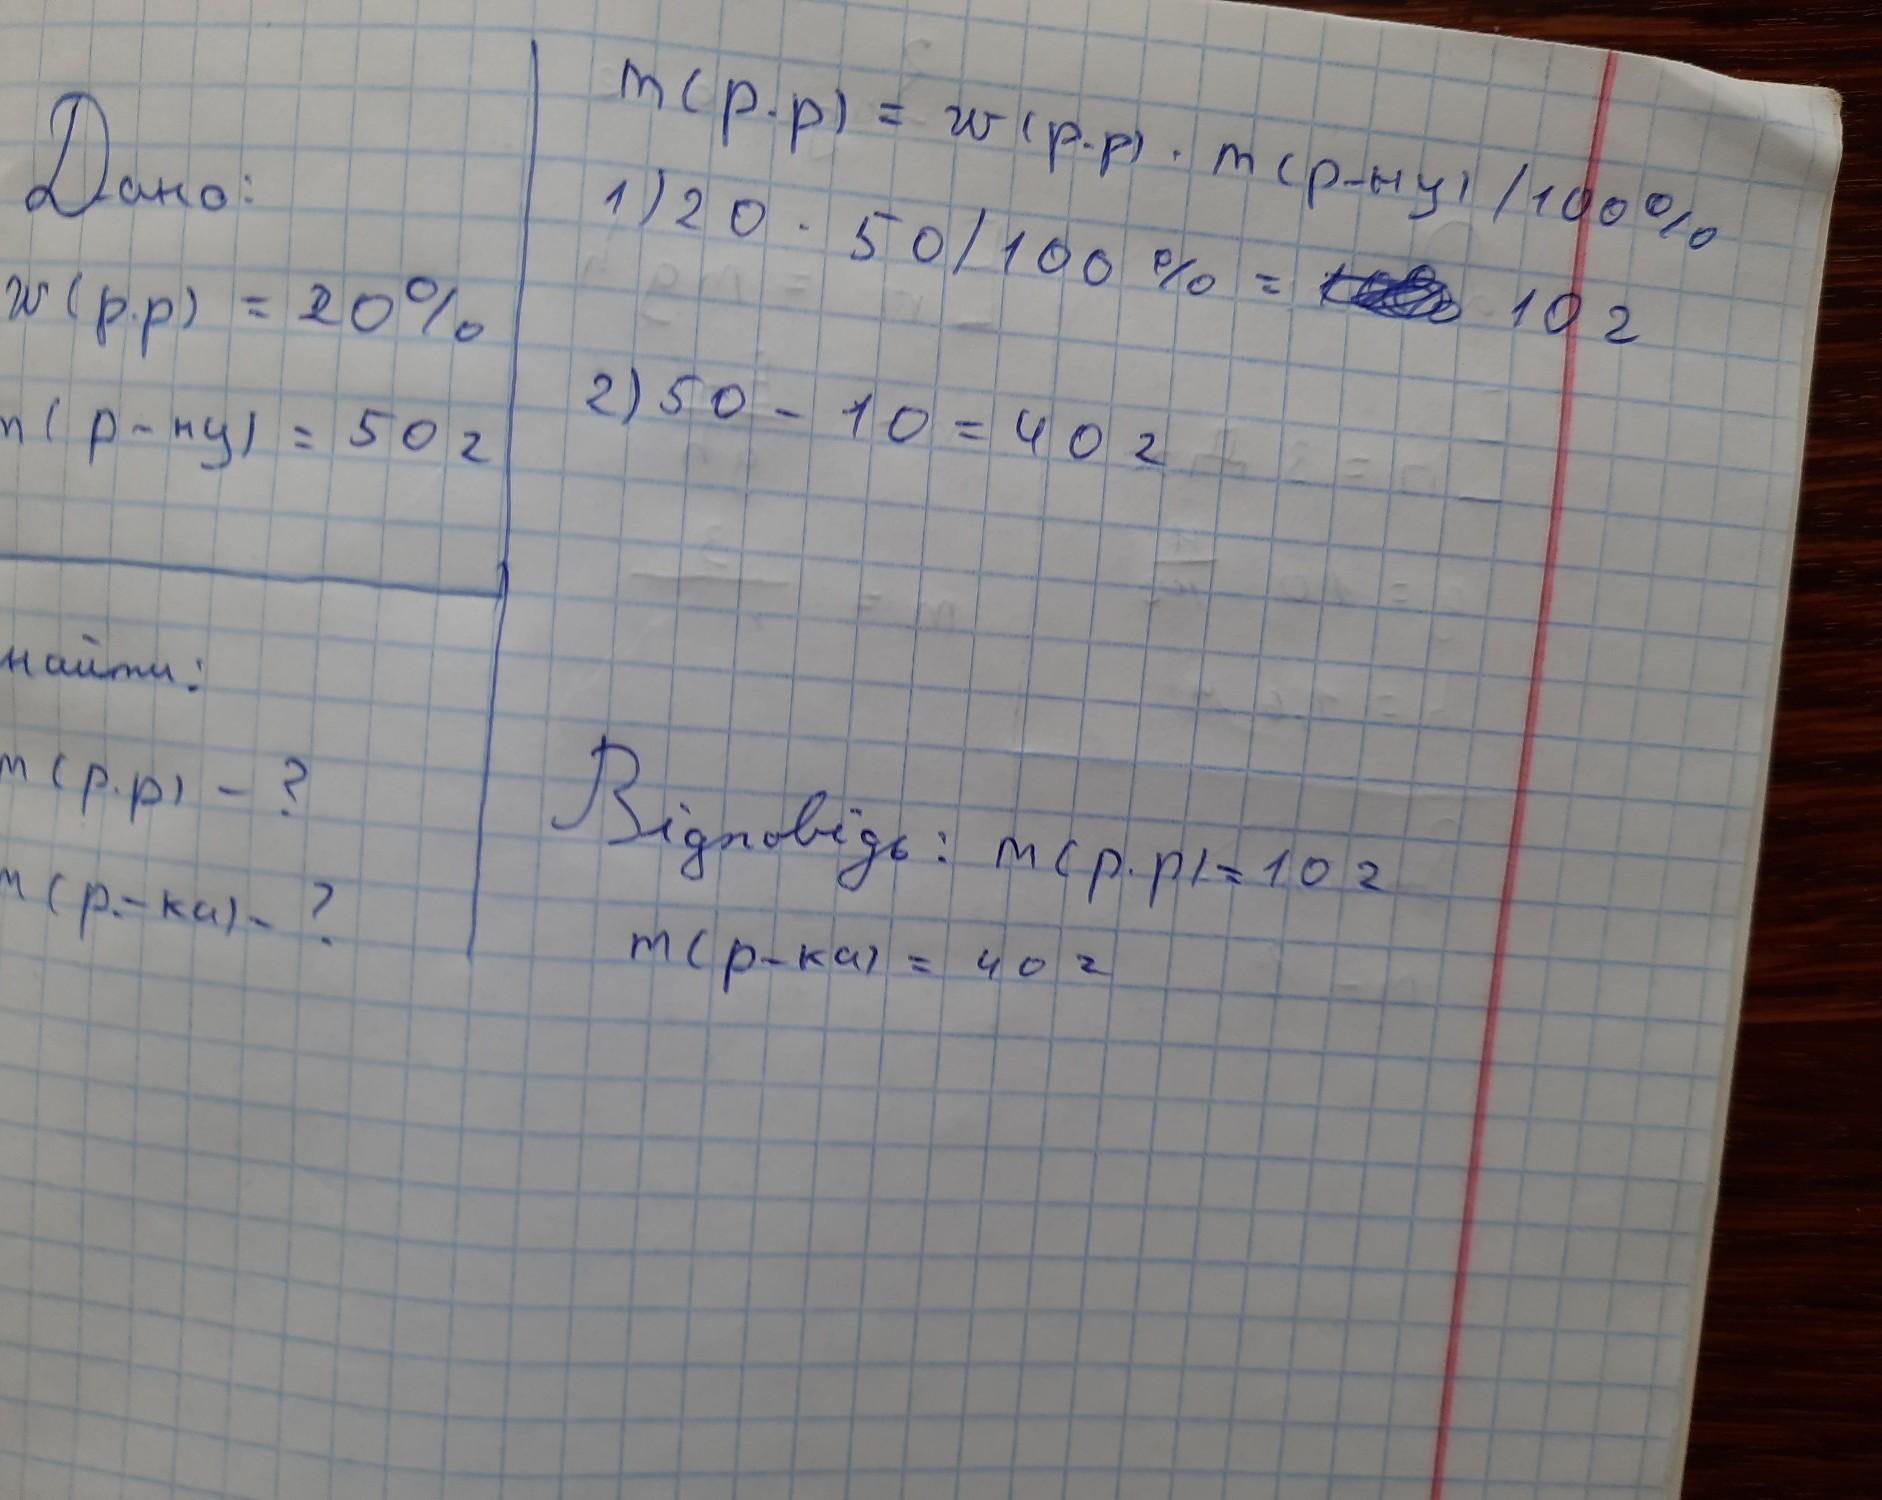 Дано:
w(р.р) = 20%
m(р-ну) = 50 г
найти:
m(р.р) - ?
m(р.-ка) - ?
m(р.р) = w(р.р) · m(р-ну) /100%
1) 20 · 50/100% = 10 г
2) 50 - 10 = 40 г
Відповідь: m(р.р) = 10 г
m(р-ка) = 40 г